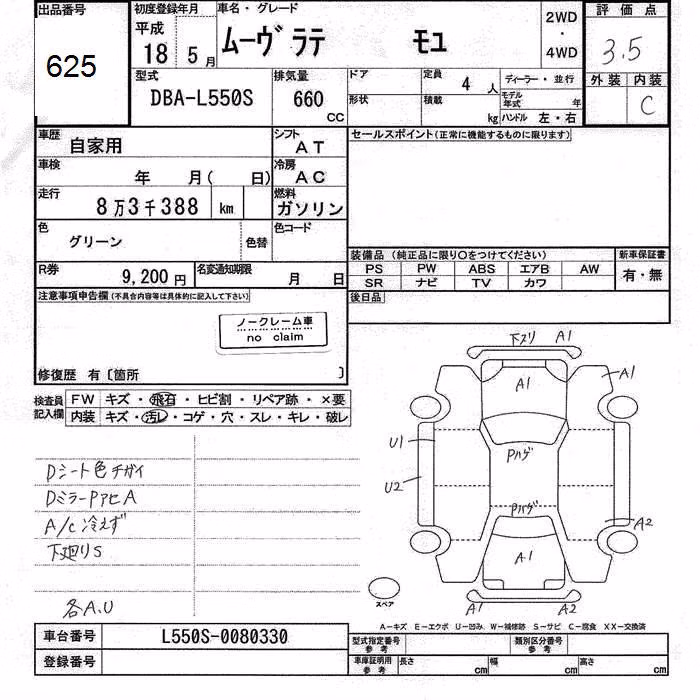 出品番号
625
初度登録年月
平成
18 5 月
車名・グレード
ムーヴ ラテ モユ
2WD
・
4WD
評価点
3.5
外装 内装
C
型式
DBA-L550S
排気量
660
CC
ドア
形状
定員
4 人
積載
kg
ディーラー・並行
モデル
年式 年
ハンドル 左・右
車歴
自家用
シフト
AT
車検
年 月( 日)
冷房
AC
走行
8万3千388 km
燃料
ガソリン
色
グリーン
色替
色コード
R券
9,200 円
名変通知期限
月 日
セールスポイント(正常に機能するものに限ります)
装備品 (純正品に限り○をつけてください)
PS PW ABS エアB AW
SR ナビ TV カワ
新車保証書
有・無
後日品
注意事項申告欄(不具合内容等は具体的に記入して下さい)
ノークレーム車
no claim
修復歴 有〔箇所 〕
検査員
記入欄
FW キズ・飛石・ヒビ割・リペア跡・×要
内装 キズ・汚レ・コゲ・穴・スレ・キレ・破レ
Dシート色チガイ
DミラーPアセA
A/C冷えず
下廻りS
各A.U
下スリ A1
A1
A1
U1
Pハゲ
U2
Pハゲ
A2
A1
A1 A2
スペア
A－キズ E－エクボ U－凹み W－補修跡 S－サビ C－腐食 XX－交換済
車台番号
L550S-0080330
登録番号
型式指定番号
参考
類別区分番号
参考
車庫証明用
参考
長さ cm
幅 cm
高さ cm